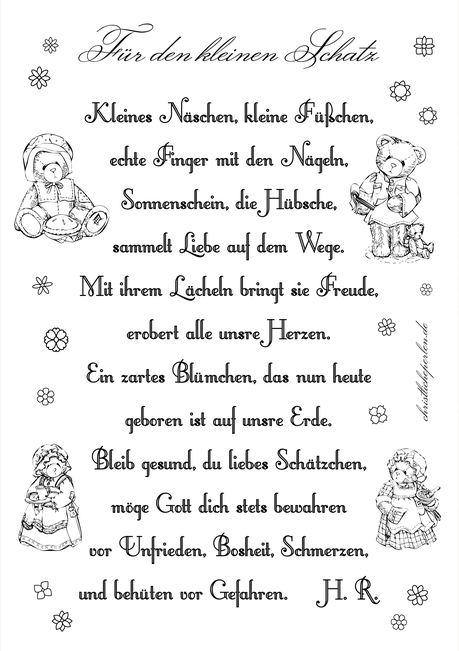 Für den kleinen Schatz
Kleines Näschen, kleine Füßchen,
echte Finger mit den Nägeln,
Sonnenschein, die Hübsche,
sammelt Liebe auf dem Wege.
Mit ihrem Lächeln bringt sie Freude,
erobert alle unsre Herzen.
Ein zartes Blümchen, das nun heute
geboren ist auf unsre Erde.
Bleib gesund, du liebes Schätzchen,
möge Gott dich stets bewahren
vor Unfrieden, Bosheit, Schmerzen,
und behüten vor Gefahren. H. R.
christlicheperlen.de